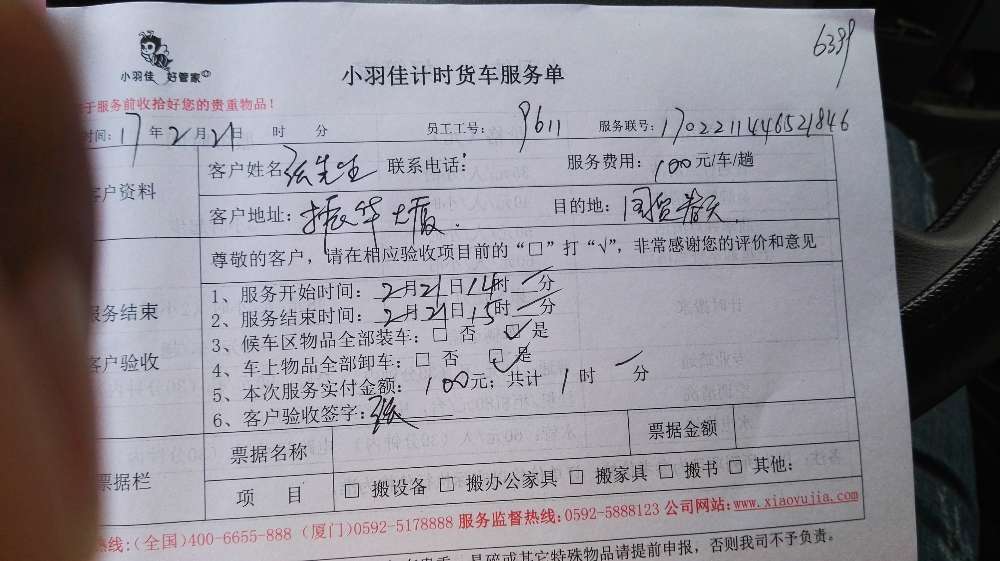 6399
小羽佳 好管家
小羽佳计时货车服务单
于服务前收拾好您的贵重物品！
时间：17年2月21日 时 分 员工工号：9611 服务联号：170221144652 1846
客户资料
客户姓名 张先生 联系电话： 服务费用：100元/车/趟
客户地址：振华大厦 目的地：国贸春天
尊敬的客户，请在相应验收项目前的“□”打“√”，非常感谢您的评价和意见
服务结束
客户验收
1、服务开始时间：2月21日14时一分
2、服务结束时间：2月21日15时一分
3、候车区物品全部装车：□ 否 ☑ 是
4、车上物品全部卸车：□ 否 ☑ 是
5、本次服务实付金额：100元；共计1时一分
6、客户验收签字：张
票据栏
票据名称 票据金额
项 目 □ 搬设备 □ 搬办公家具 □ 搬家具 □ 搬书 □ 其他：
热线：(全国)400-6655-888 (厦门)0592-5178888 服务监督热线：0592-5888123 公司网站：www.xiaoyujia.com
易碎或其它特殊物品请提前申报，否则我司不予负责。